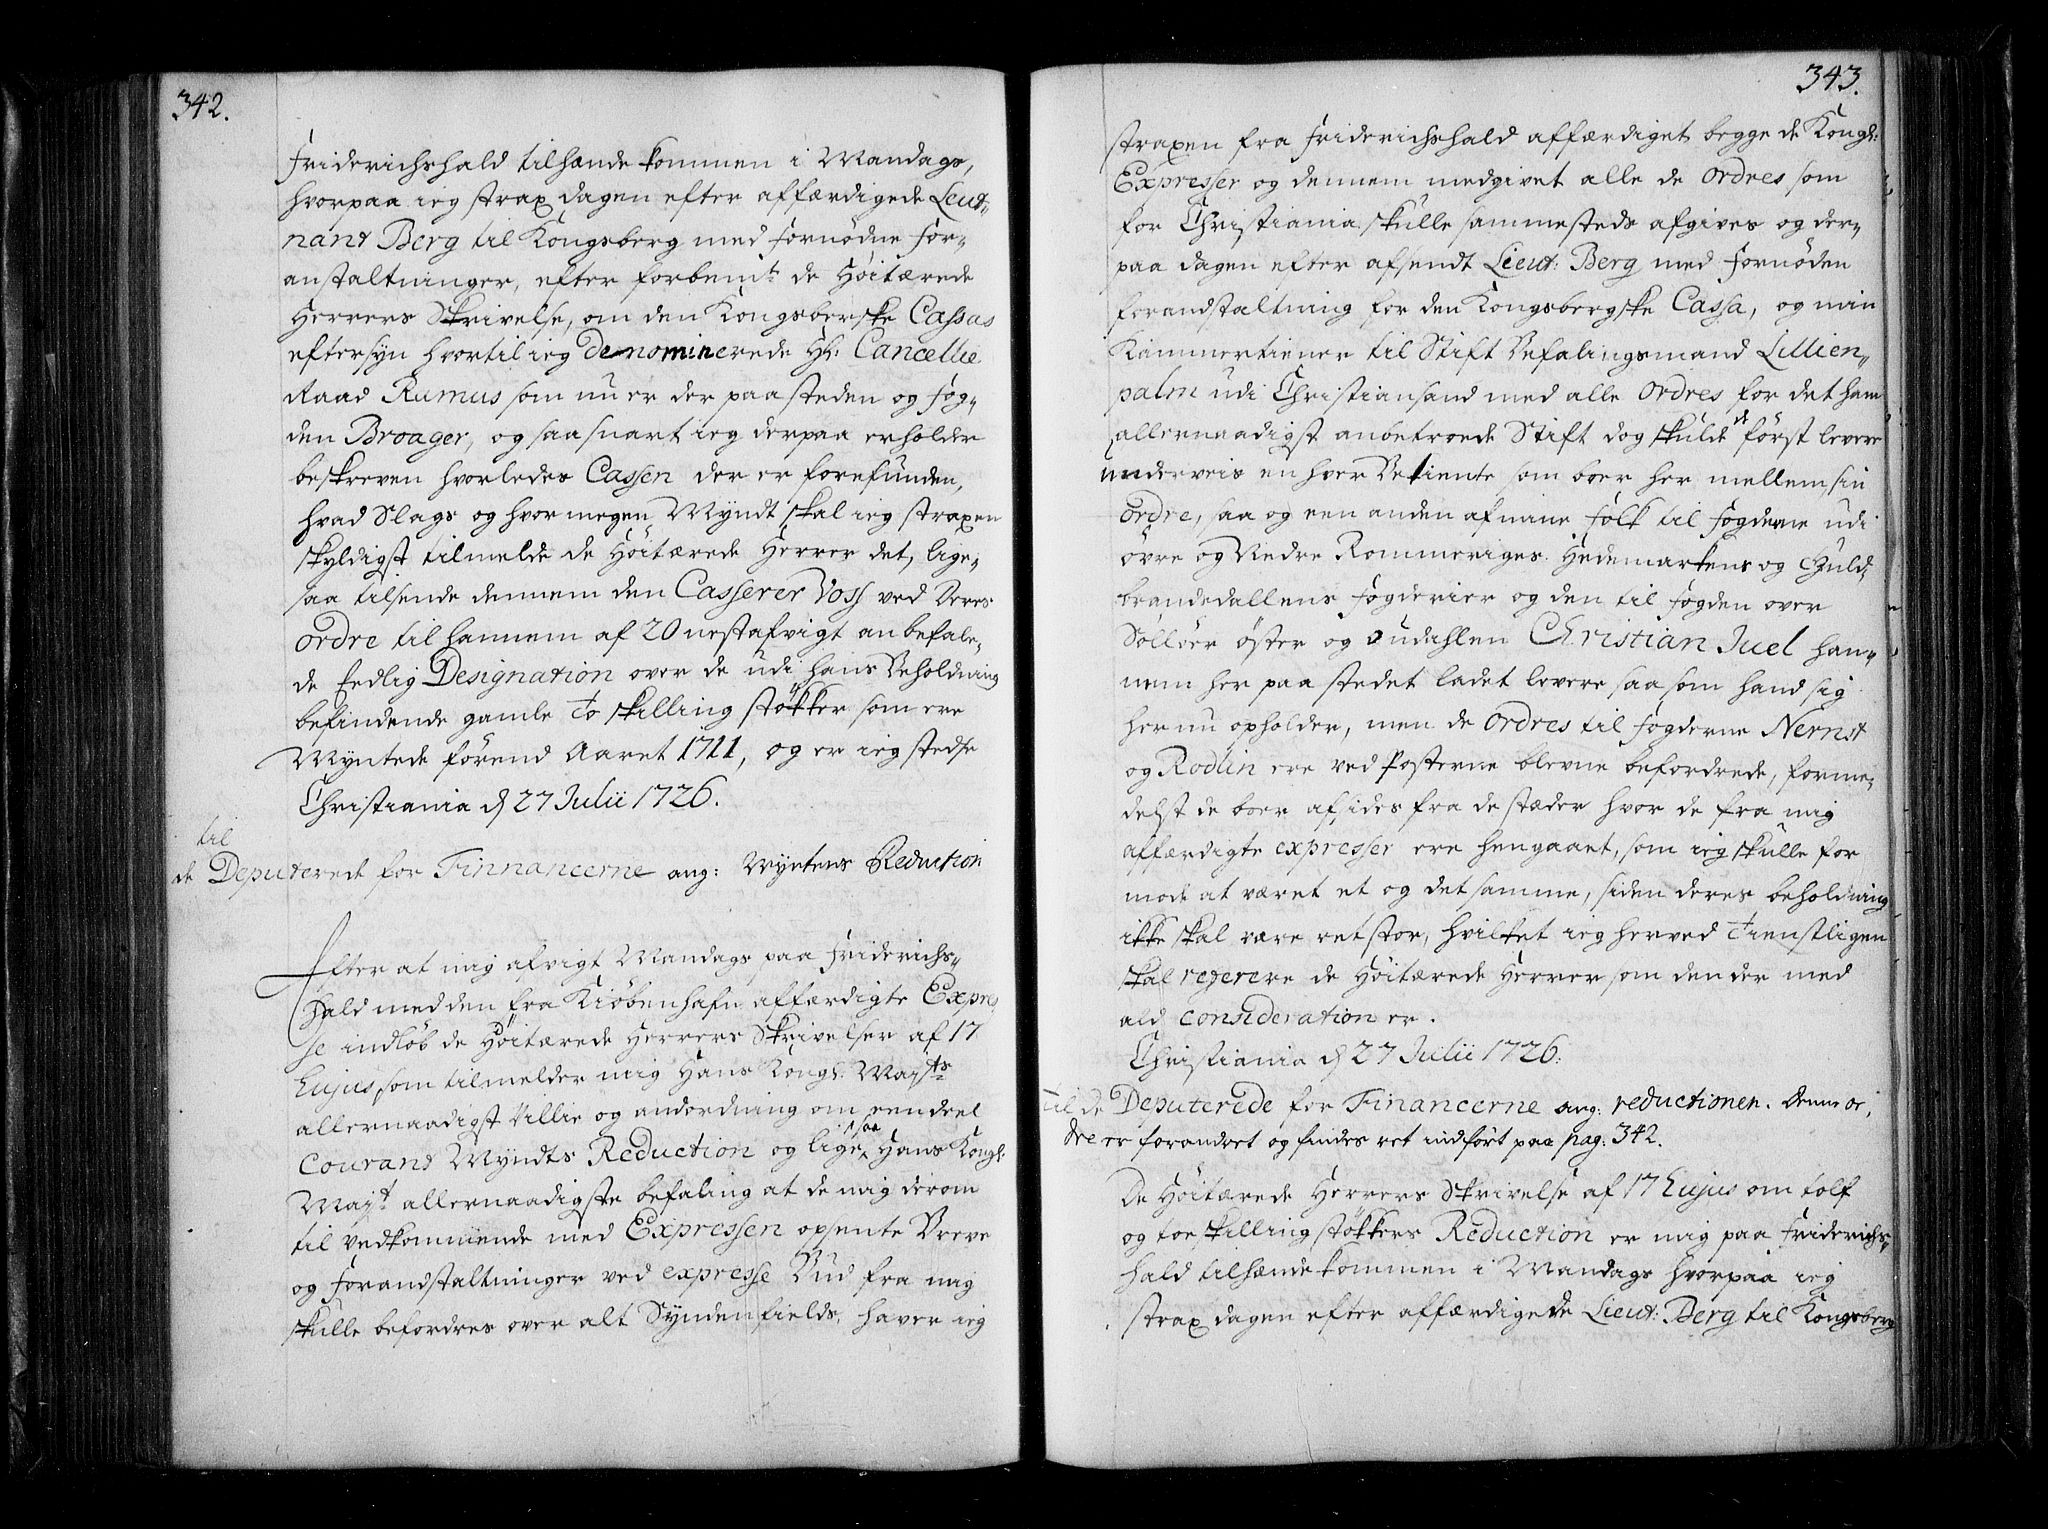 342.
Friderichshald tilhænde kommen i Mandags,
hvorpaa ieg strax dagen efter affærdigede Leut-
nant Berg til Kongsberg med fornødne For-
anstaltninger, efter forbemte de Høitærede
Herrers Skrivelse, om den Kongsberske Cassas
eftersyn hvortil ieg denominerede Hr: Cancellie
Raad Ramus som nu er der paa steden og fog-
den Broager, og saa snart ieg derpaa erholder
beskreven hvorledes Cassen der er forefunden,
hvad Slags og hvor megen Myndt skal ieg straxen
skyldigst tilmelde de Høitærede Herrer det, lige-
saa tilsende dennem den Casserer Voss ved Deres
ordre til hannem af 20 nestafvigt anbefale-
de Eedlig Designation over de udi hans Beholdning
befindende gamle To skilling støkker som ere
Myntede førend Aaret 1711, og er ieg stedse
Christiania d 27 Julii 1726.
til
de Deputerede for Finnancerne ang: Myntens Reduction
Efter at mig afvigt Mandags paa Friderichs-
hald med den fra Kiøbenhafn affærdigte Expres
se indløb de Høitærede Herrers Skrivelser af 17
hujus, som tilmelder mig Hans Kongl: Mayts
allernaadigst Villie og andordning om eendeel
Courant Myndts Reduction og lige saa Hans Kongl:
Mayt allernaadigste befaling at de mig derom
til vedkommende med Expressen opsente Breve
og Forandstaltninger ved expresse Bud fra mig
skulle befordres over alt Syndenfields, haver ieg
343.
straxen fra Friderichshald affærdiget begge de Kongl:
Expresser og dennem medgivet alle de Ordres som
for Christiania skulle sammesteds afgives og der-
paa dagen efter afsendt Lieut: Berg med fornøden
forandstaltning for den Kongsbergske Cassa, og min
Kammertiener til Stift Befalingsmand Lillien-
palm udi Christiansand med alle Ordres for det ham
allernaadigst anbetroede Stift dog skulde først levere
underveis en hver Betiente som boer her mellem sin
Ordre, saa og een anden af mine folk til fogderne udi
øvre og Nedre Rommeriges. Hedemarkens og Guld-
brandsdallens fogderier og den til fogden over
Solløer øster og oudahlen Christian Juel han-
nem her paa stedet ladet levere saasom hand sig
her nu opholder, men de Ordres til fogderne Nernst
og Rodlin ere ved Posterne blevne befordrede, forme-
delst de boer afsides fra de stæder hvor de fra mig
affærdigte expresser ere hengaaet, som ieg skulle for
mode at været et og det samme, siden deres beholdning
ikke skal være ret stor, hvilket ieg herved Tienstligen
skal referere de Høitærede Herrer, som den der med
ald consideration er.
Christiania d 27 Julii 1726.
til de Deputerede for Financerne ang: reductionen. Denne or,
dre er forandret og findes ret indført paa pag: 342.
De Høitærede Herrers Skrivelse af 17 hujus om tolf
og toe skilling støkkers Reduction er mig paa Friderichs-
hald tilhænde kommen i Mandags hvorpaa ieg
strax dagen efter affærdigede Lieut: Berg til Kongsberg